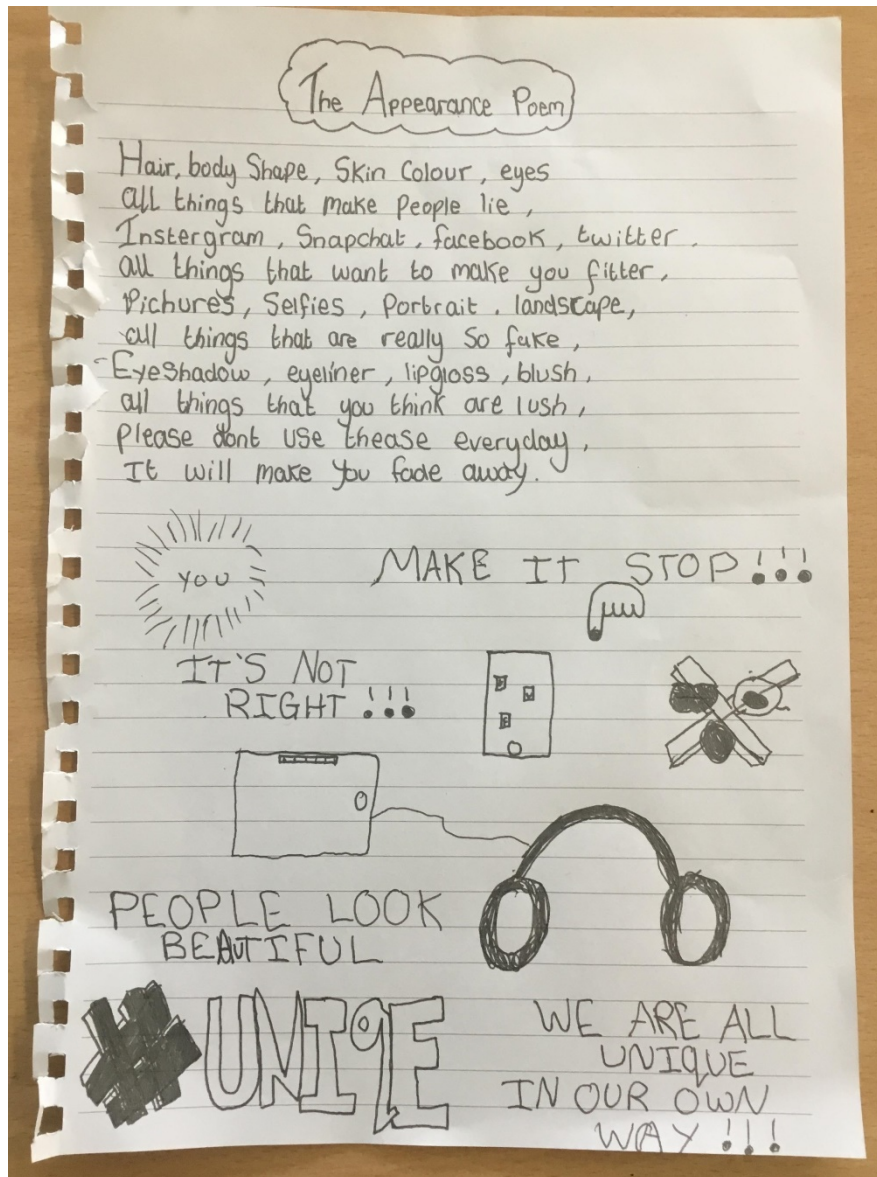 The Appearance Poem
Hair, body Shape, Skin Colour, eyes
all things that make People lie,
Instergram, Snapchat, facebook, twitter.
all things that want to make you fitter,
Pichures, Selfies, Portrait, landscape,
all things that are really So fake,
Eyeshadow, eyeliner, lipgloss, blush,
all things that you think are lush,
please dont use thease everyday,
It will make you fade away.
YOU
MAKE IT STOP!!!
IT'S NOT
RIGHT!!!
PEOPLE LOOK
BEAUTIFUL
#UNIqE
WE ARE ALL
UNIQUE
IN OUR OWN
WAY!!!